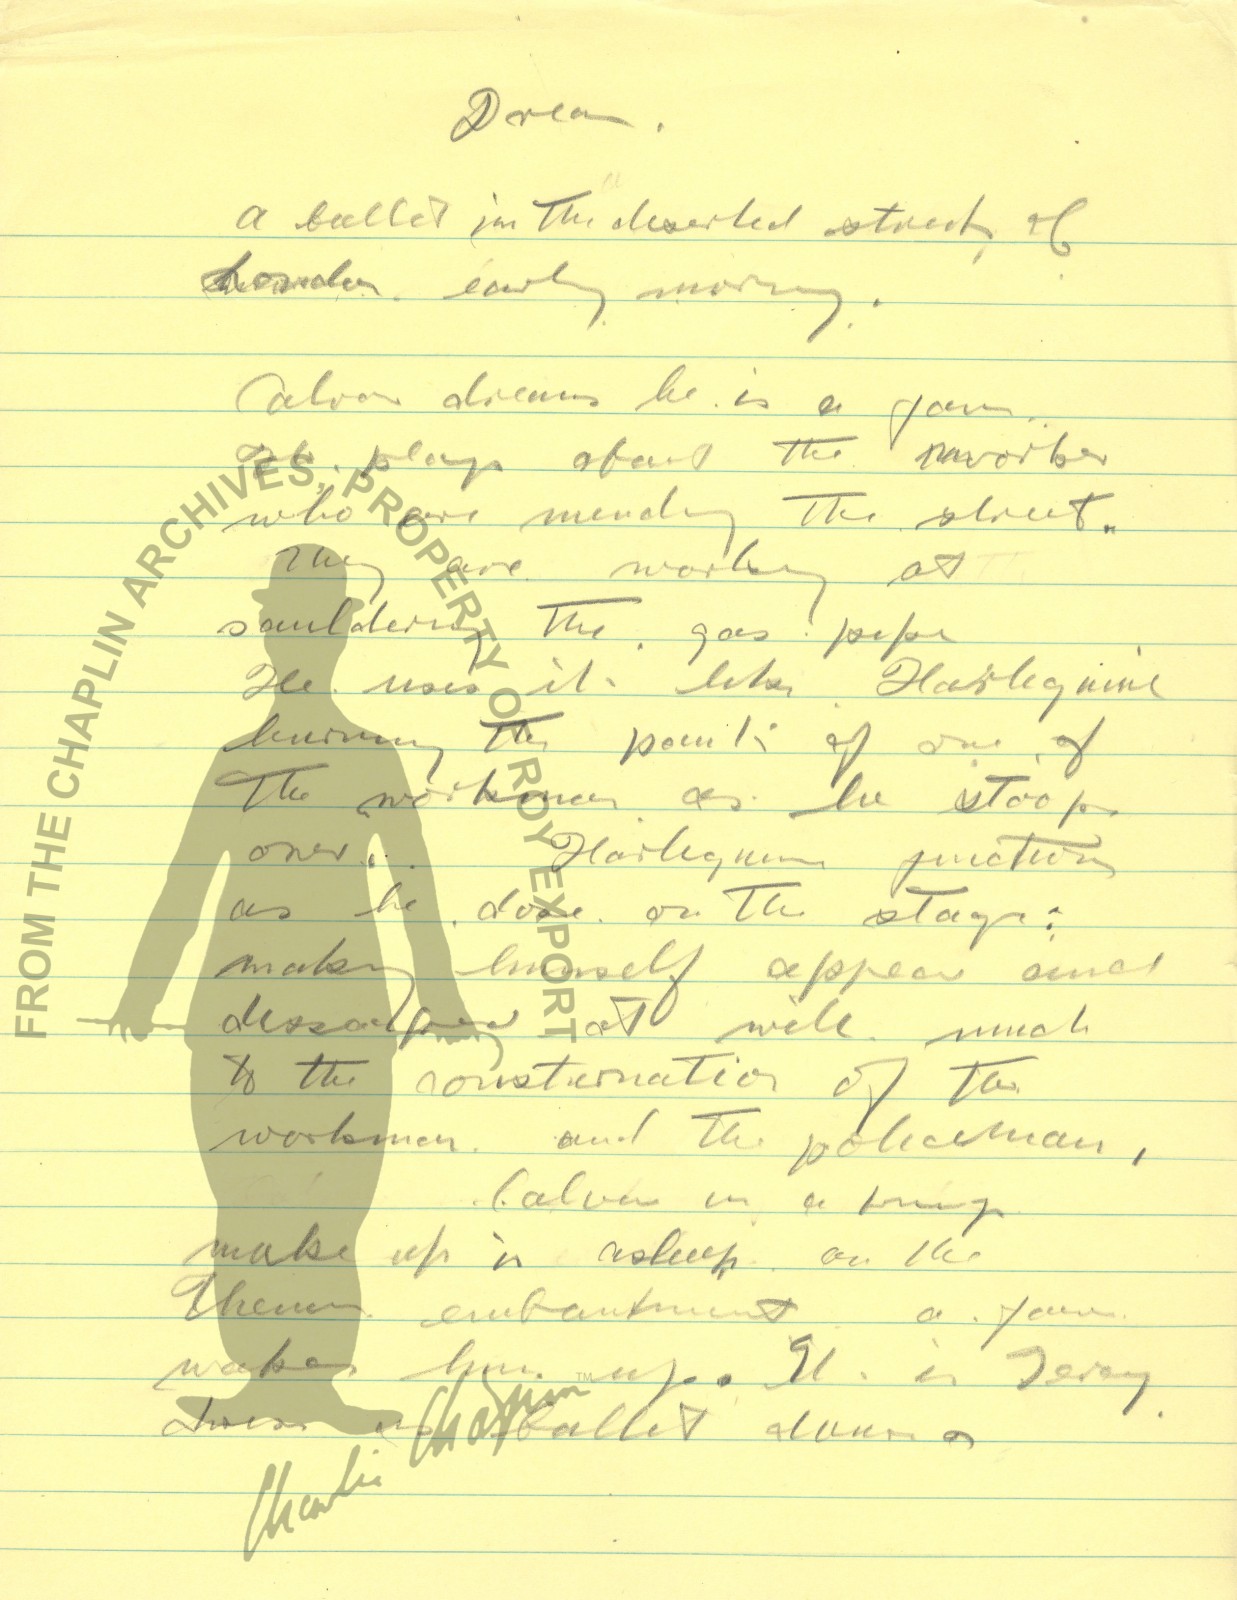 Dream.
a ballet in the deserted streets of
London early morning.
Calvero dreams he is a faun.
He plays about the worker
who are mending the street.
They are working at
sauldering the gas pipe
He uses it like Harlequine
burning the pants of one of
the workmen as he stoop
over... Harlequin
as he dose on the stage:
making himself appear and
dessapear at will much
to the consternation of the
workmen and the policeman,
Calvero in a
make up is asleep on the
Themes embankment a faun
wakes him up. It is Terry
dress as ballet
FROM THE CHAPLIN ARCHIVES, PROPERTY OF ROY EXPORT
Charlie Chaplin TM